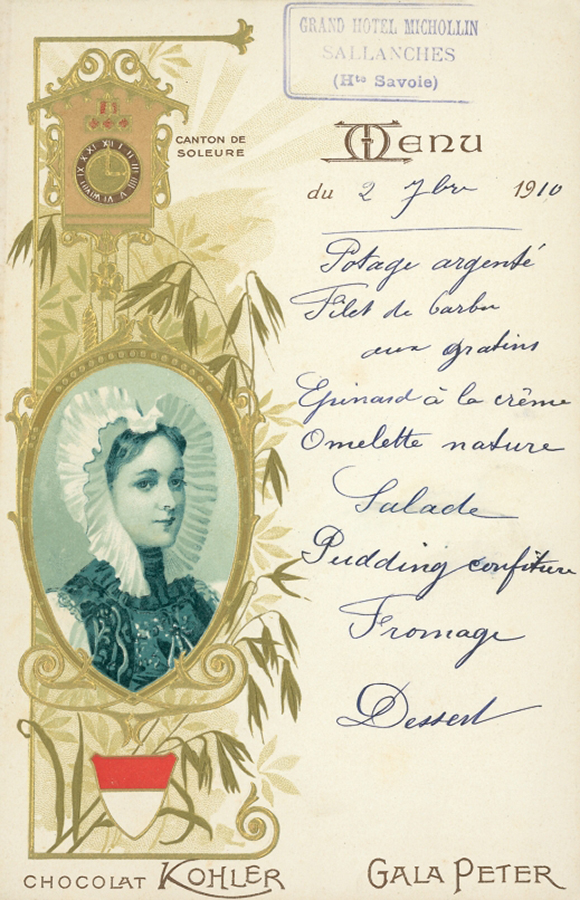 GRAND HOTEL MICHOLLIN
SALLANCHES
(Hte Savoie)
CANTON DE
SOLEURE
MENU
du 2 7bre 1910
Potage argenté
Filet de barbue
aux gratins
Epinard à la crême
Omelette nature
Salade
Pudding confiture
Fromage
Dessert
CHOCOLAT KOHLER
GALA PETER